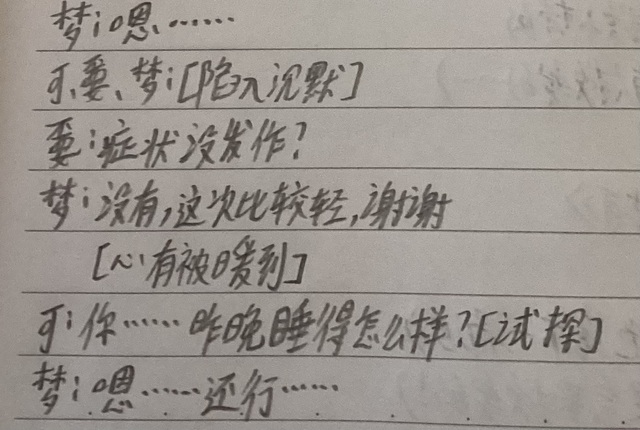 梦:嗯……
可、要、梦:[陷入沉默]
要:症状没发作?
梦:没有,这次比较轻,谢谢
[心有被暖到]
可:你……昨晚睡得怎么样?[试探]
梦:嗯……还行……